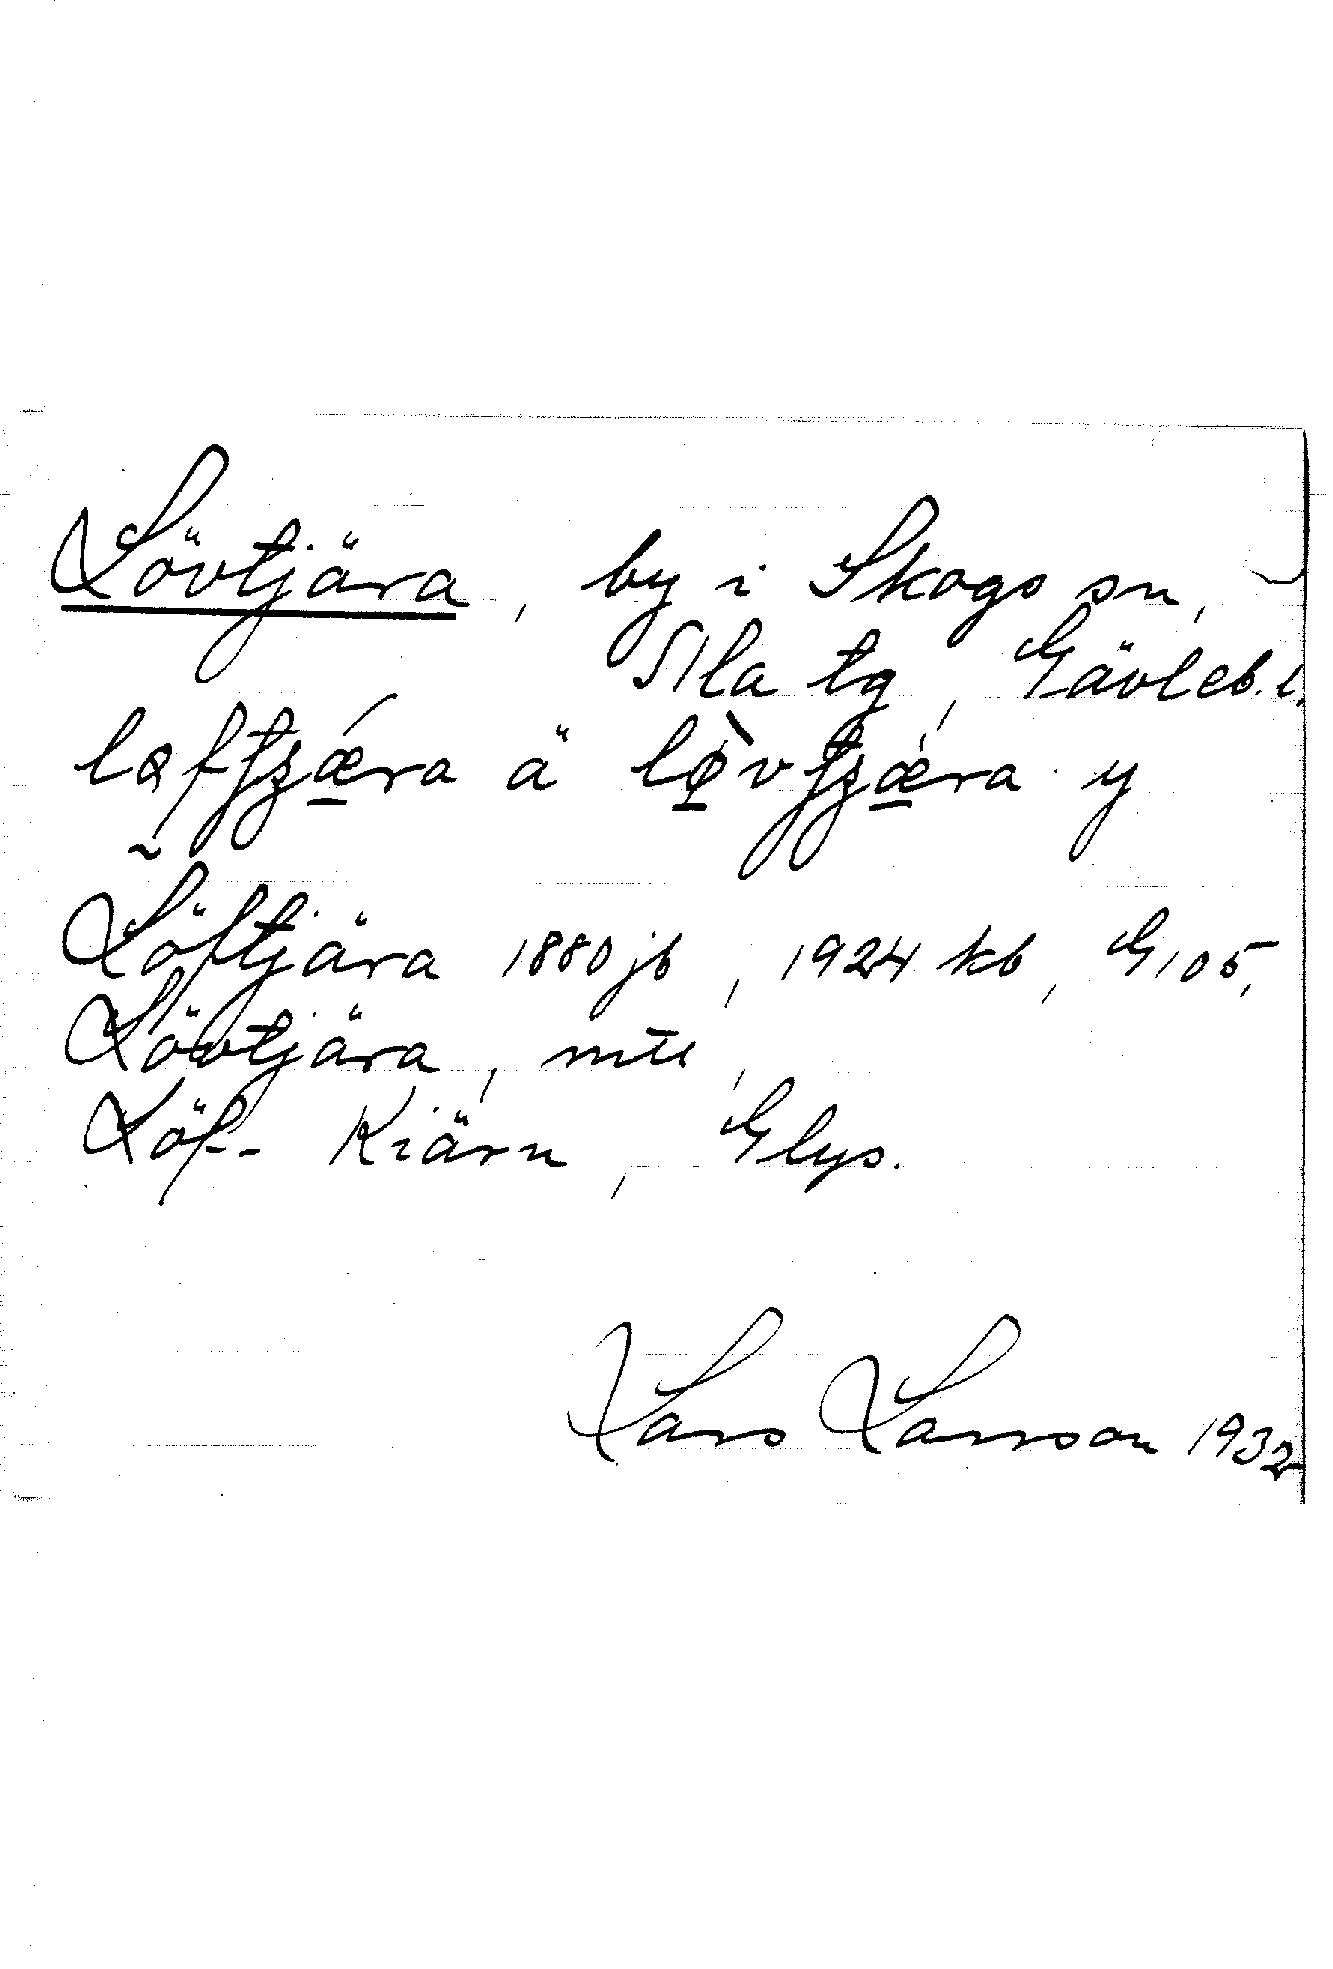 Lövtjära, by i Skogs sn,
Ala tg, Gävleb. l.
ä y
Löftjära 1880 jb, 1924 kb, G 105,
Lövtjära, mtl,
Löf- Kiärn, Glys.
Lars Larsson 1932